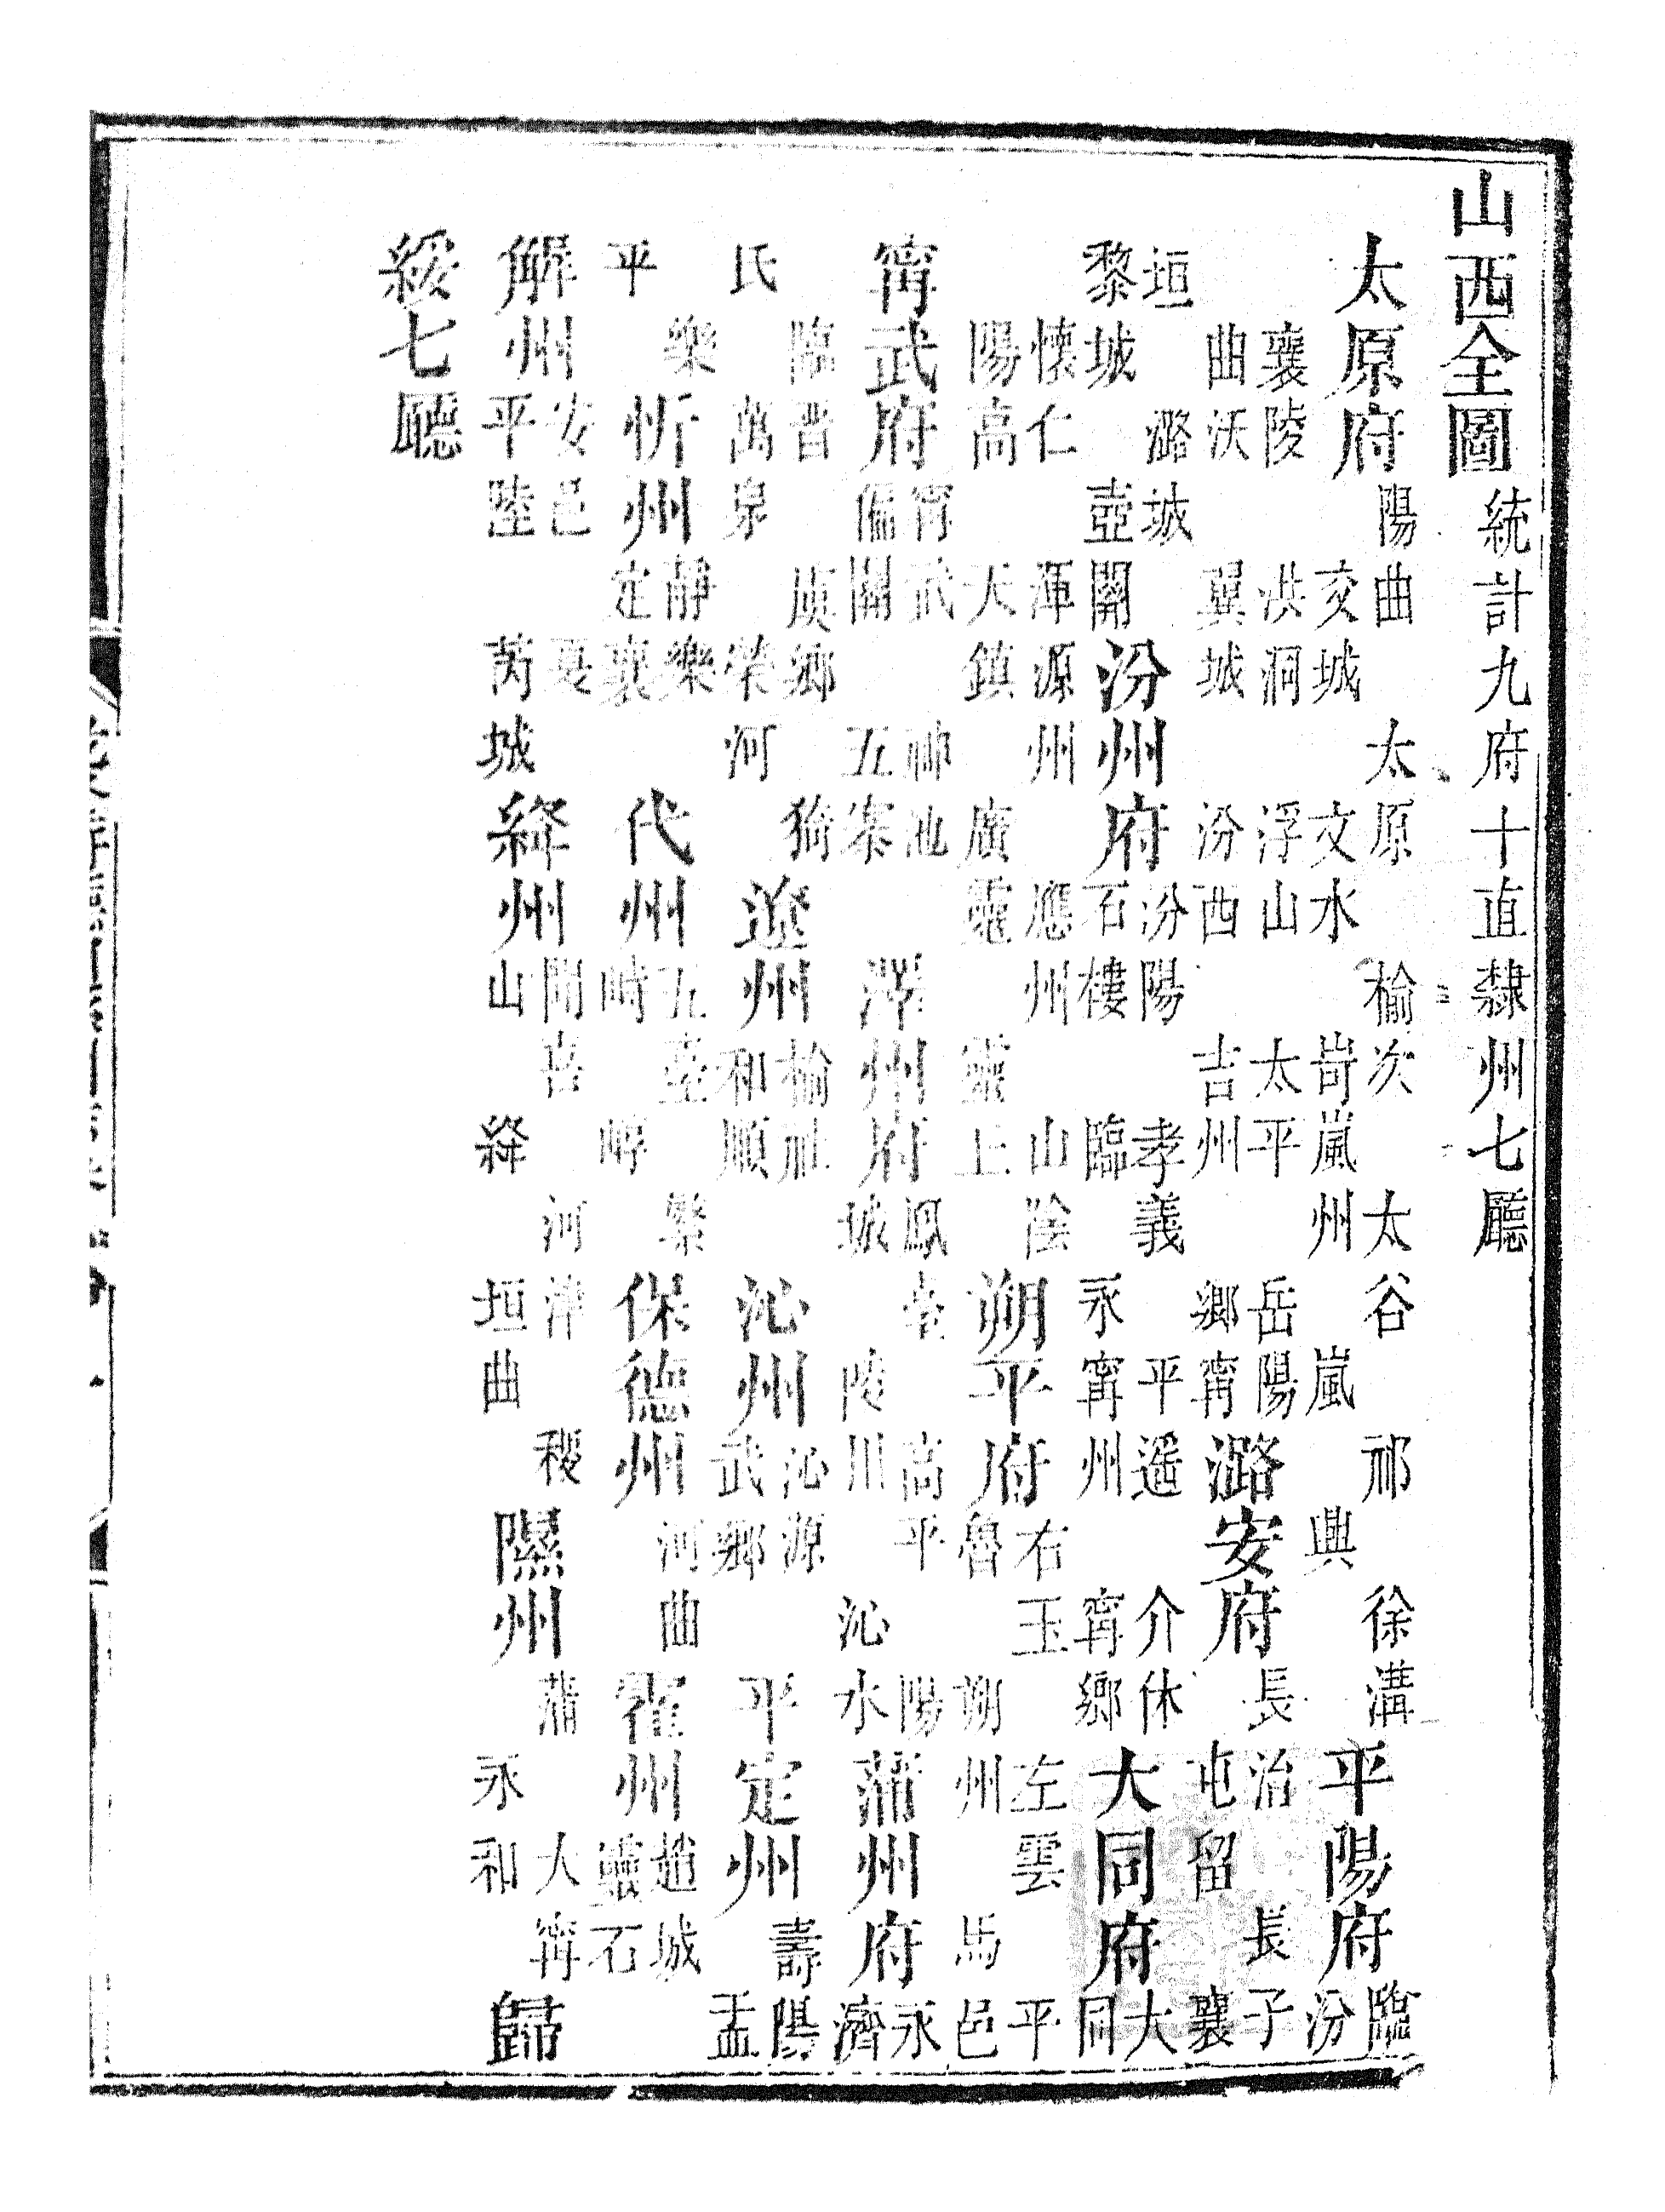 山西全圖
統計九府十直隸州七廳
太原府
陽曲 太原 榆次 太谷 祁 徐溝
交城 文水 岢嵐州 嵐 興
平陽府
臨
汾
襄陵 洪洞 浮山 太平 岳陽
曲沃 翼城 汾西 吉州 鄉甯
潞安府
長治 長子
屯留 襄
垣 潞城
黎城 壺關
汾州府
汾陽 孝義 平遥 介休
石樓 臨 永甯州 甯鄉
大同府
大
同
懷仁 渾源州 應州 山陰
陽高 天鎮 廣靈 靈丘
朔平府
右玉 左雲 平
魯 朔州 馬邑
甯武府
甯武 神池
偏關 五寨
澤州府
鳳臺 高平 陽
城 陵川 沁水
蒲州府
永
濟
臨晉 虞鄉 猗
氏 萬泉 榮河
遼州
榆社
和順
沁州
沁源
武鄉
平定州
壽陽
盂
樂
平
忻州
静樂
定襄
代州
五臺 繁
峙 崞
保德州
河曲
霍州
趙城
靈石
解州
安邑 夏
平陸 芮城
絳州
聞喜 河津 稷
山 絳 垣曲
隰州
蒲 大甯
永和
歸
綏七廳